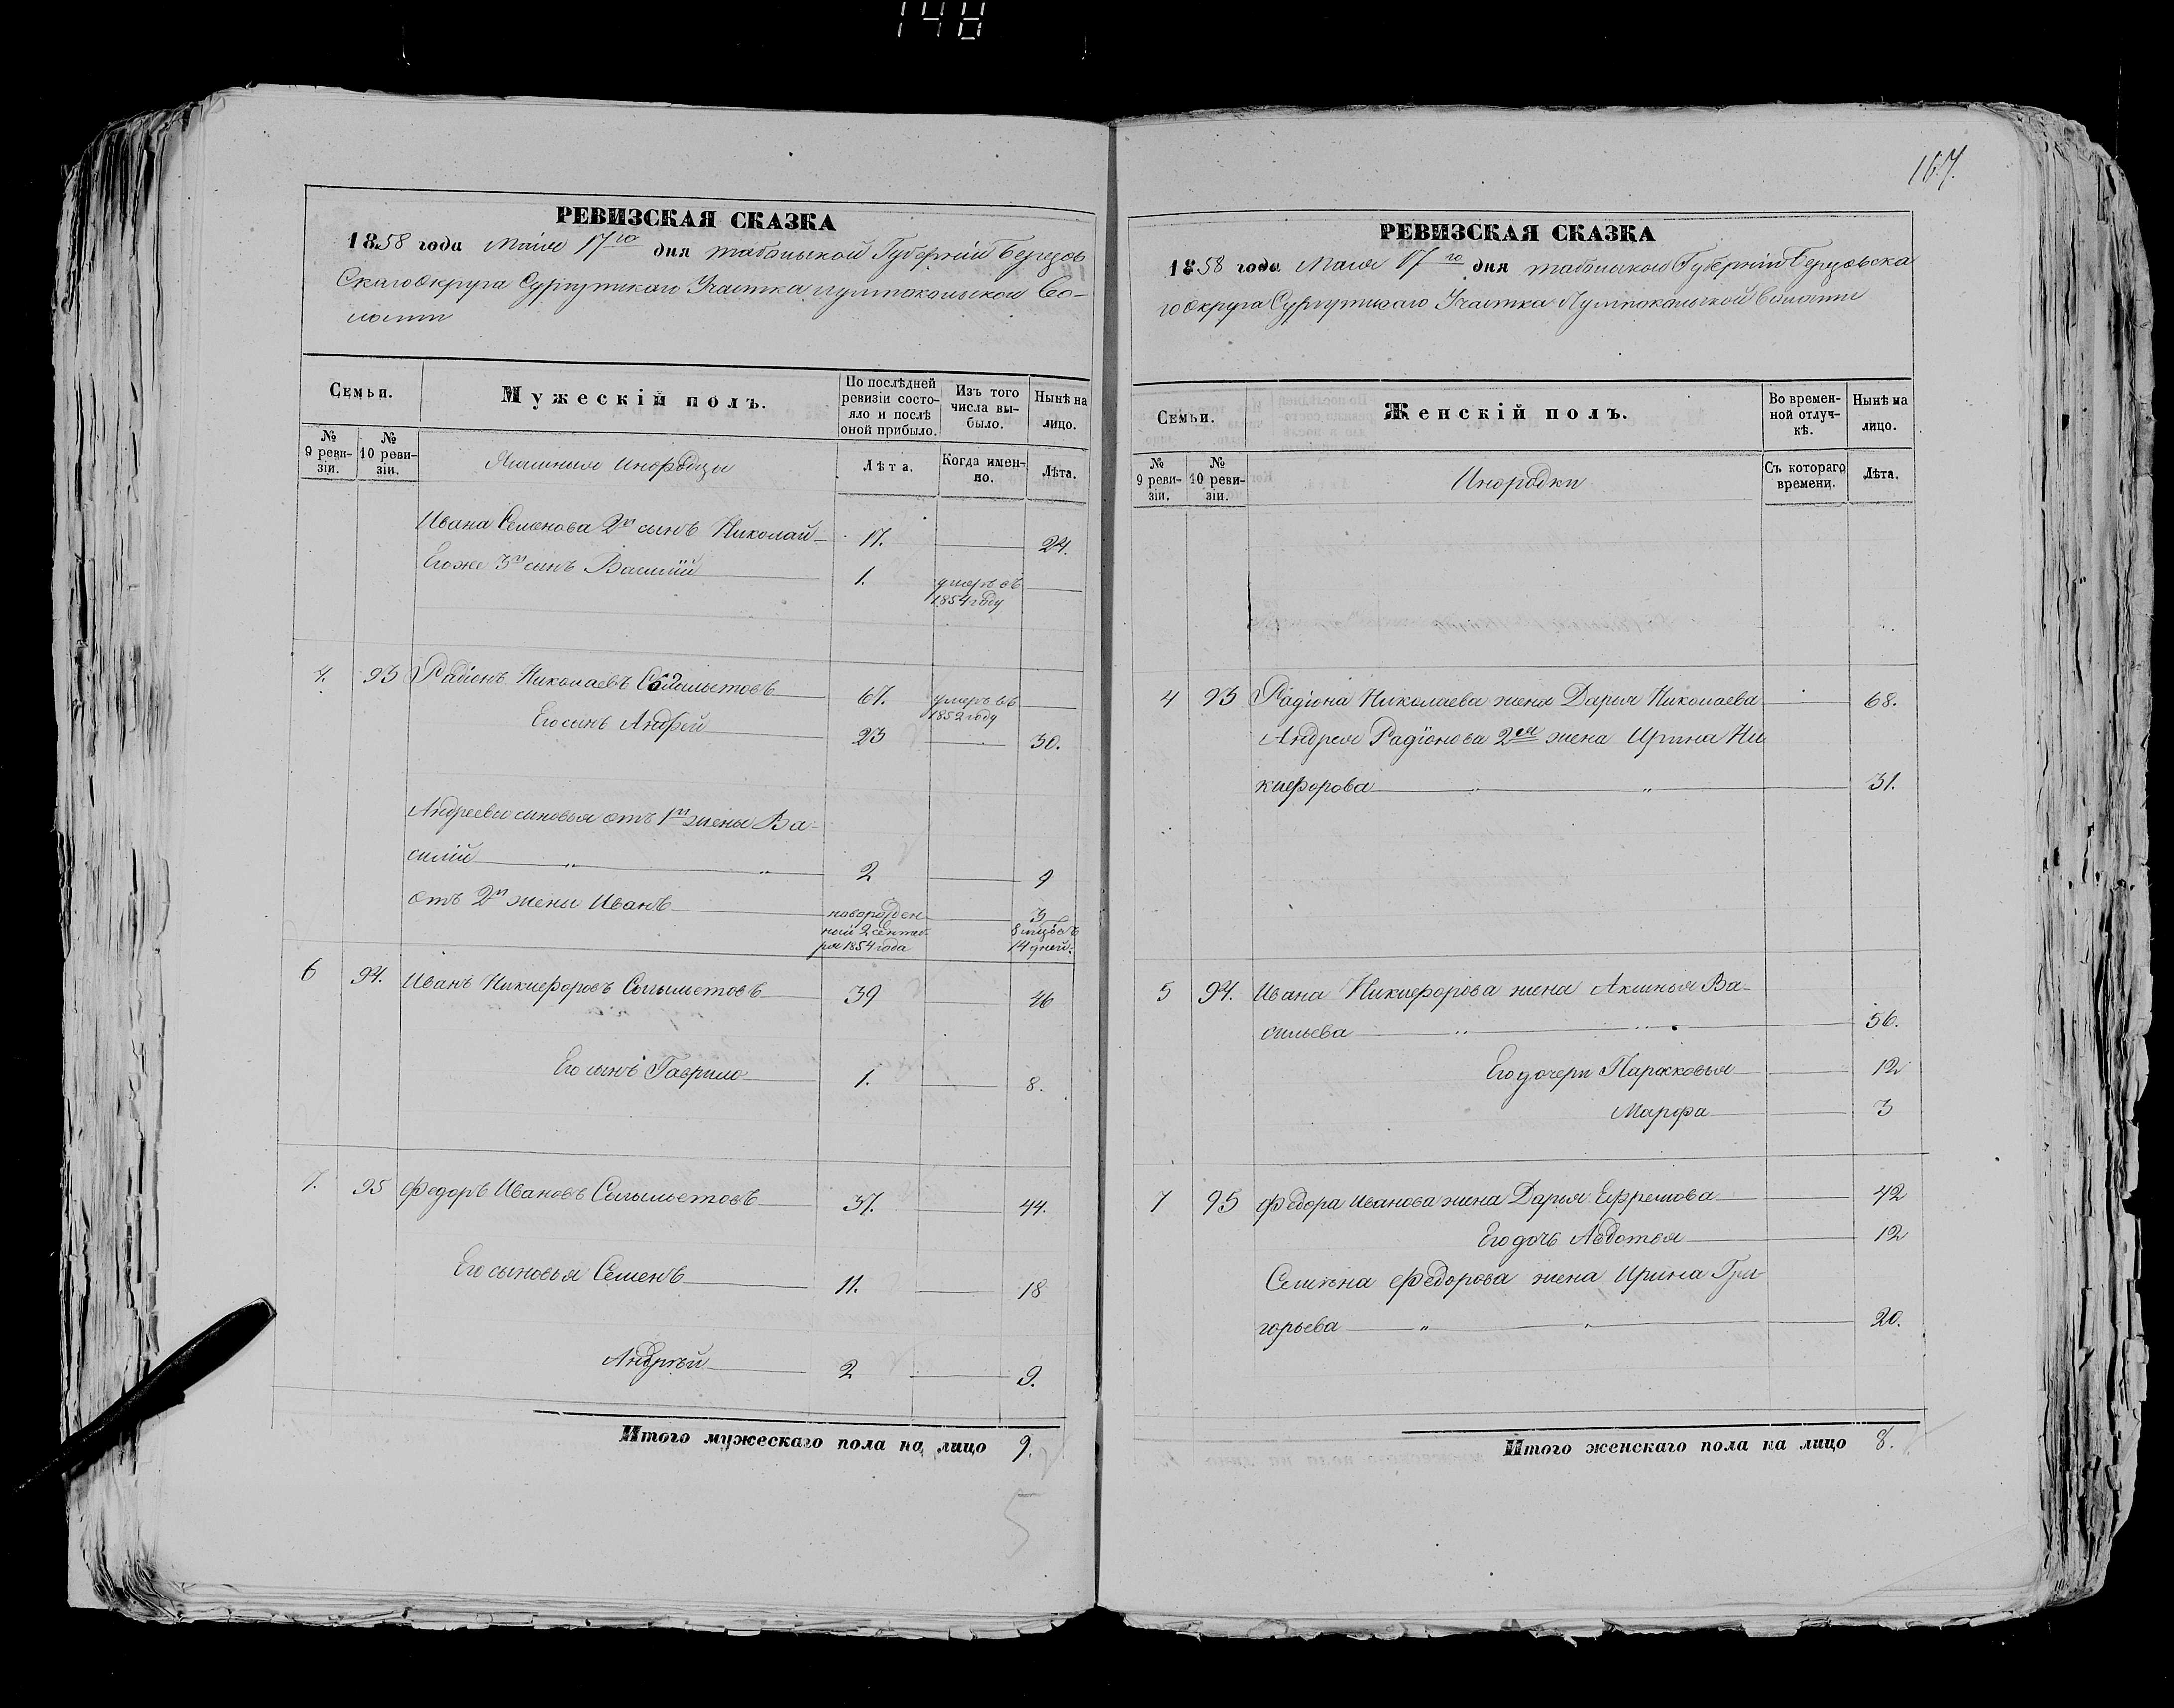 148
РЕВИЗСКАЯ СКАЗКА
1858 года Маія 17го дня табольской Губерніи Березов
Скаго Округа Сургутскаго Участка пулмпокольской Во-
лости
Семьи.
Мужескій полъ.
По послѣдней ревизіи состояло и послѣ оной прибыло.
Изъ того числа выбыло.
Нынѣ на лицо.
№ 9 ревизіи.
№ 10 ревизіи.
Ясашныя инородцы
Лѣта.
Когда именно.
Лѣта.
Ивана Семенова 2й сынъ Николай 17. 24.
Егоже 3й сынъ Василій 1. умеръ въ 1854 году
4. 93 Радіонъ Николаевъ 67. умеръ въ 1852 году
Его сынъ Андрей 23 30.
Андреевы сыновья отъ 1й жены Ва-
силій 2 9
отъ 2й жены Иванъ новорожденный 2 сентября 1854 года 3 8 мцовъ 14 дней.
6 94. Иванъ Никифоровъ 39 46
Его сынъ Гаврило 1. 8.
7. 95 Федоръ Ивановъ 37. 44.
Его сыновья Семенъ 11. 18
Андрѣй 2 9.
Итого мужескаго пола на лицо 9.
5
167.
РЕВИЗСКАЯ СКАЗКА
1858 года Маія 17го дня табольской Губерніи Березовска
го Округа Сургутскаго Участка Пулмпокольской Волости
Семьи.
Женскій полъ.
Во временной отлучкѣ.
Нынѣ на лицо.
№ 9 ревизіи.
№ 10 ревизіи.
Инородки
Съ котораго времени.
Лѣта.
4 93 Радіона Николаева жена Дарья Николаева 68.
Андрея Радіонова 2ая жена Ирина Ни
кифорова 31.
5 94. Ивана Никифорова жена Аксинья Ва-
сильева 56.
Его дочери Парасковья 12
Марфа 3
7 95 Федора Иванова жена Дарья Ефремова 42
Его дочь Авдотья 12
Семена Федорова жена Ирина Гри-
горьева 20.
Итого женскаго пола на лицо 8.